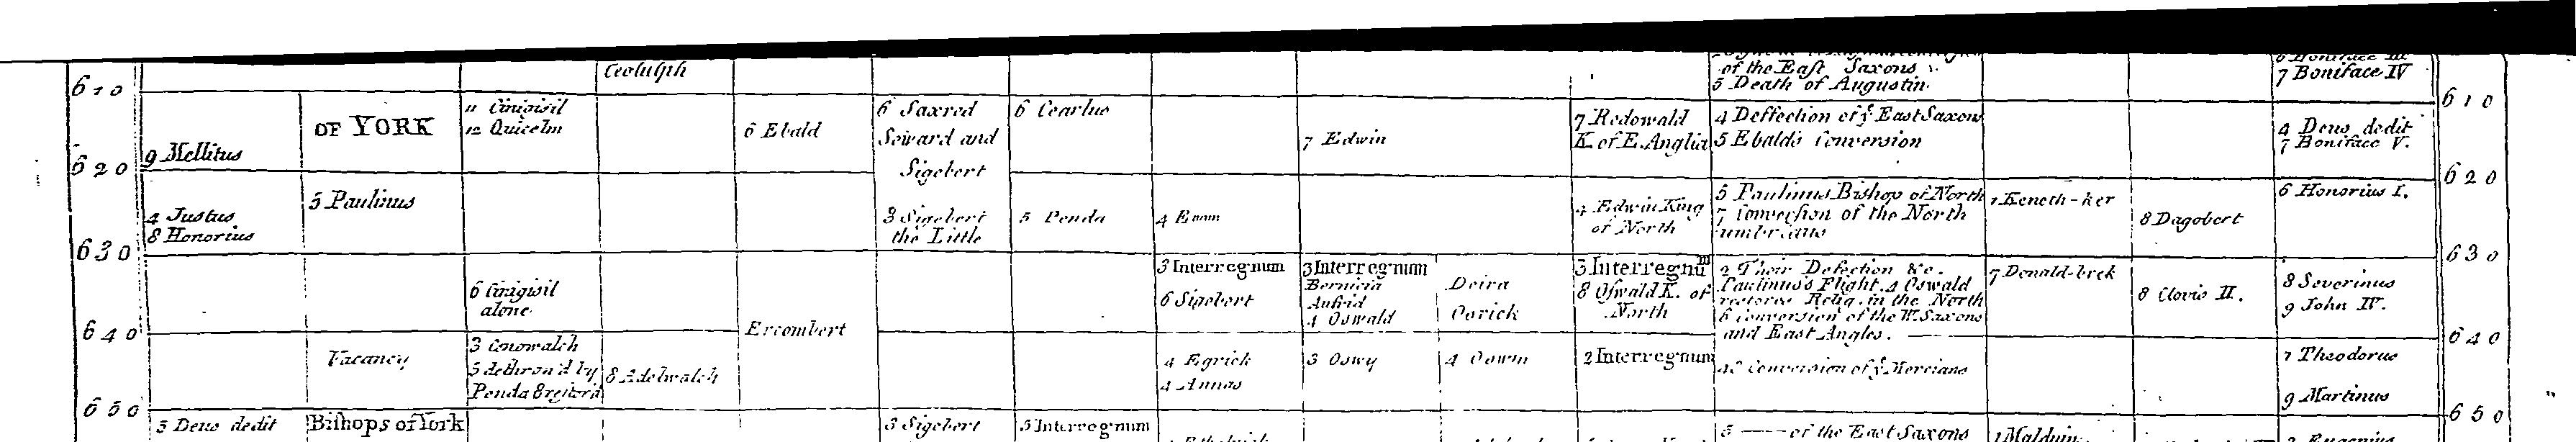 Ceolulph
of the East Saxons
5 Death of Augustin.
7 Boniface IV
610
OF YORK
11 Cinigisil
12 Quicelm
6 Ebald
6 Saxred
Seward and
Sigebert
6 Cearlus
7 Edwin
7 Redowald
K. of E. Anglia
4 Deffection of yͤ East Saxons
5 Ebald's Conversion
4 Deus dedit
7 Boniface V.
610
9 Mellitus
620
5 Paulinus
4 Justus
8 Honorius
3 Sigebert
the Little
5 Penda
4 Edwin King
of North
5 Paulinus Bishop of North
7 Conversion of the North
umbrians
1 Keneth-ker
8 Dagobert
6 Honorius I.
620
630
6 Cinigisil
alone
Ercombert
3 Interregnum
6 Sigebert
3 Interregnum
Bernicia
4 Oswald
Deira
Osrick
3 Interregnuᵐ
8 Oswald K. of
North
2 Their Defection &c.
Paulinus's Flight. 4 Oswald
restores Relig. in the North
6 conversion of the W. Saxons
and East Angles.
7 Donald-brek
8 Clovis II.
8 Severinus
9 John IV.
630
640
Vacancy
3 Cenowalch
5 dethron'd by
Penda
8 Adelwalch
4 Egrick
4 Annas
3 Oswy
4 Oswin
2 Interregnum
Conversion of yͤ Mercians
1 Theodorus
9 Martinus
640
650
3 Deus dedit
Bishops of York
3 Sigebert
5 Interregnum
5 —— of the East Saxons
1 Malduin
2 Eugenius
650